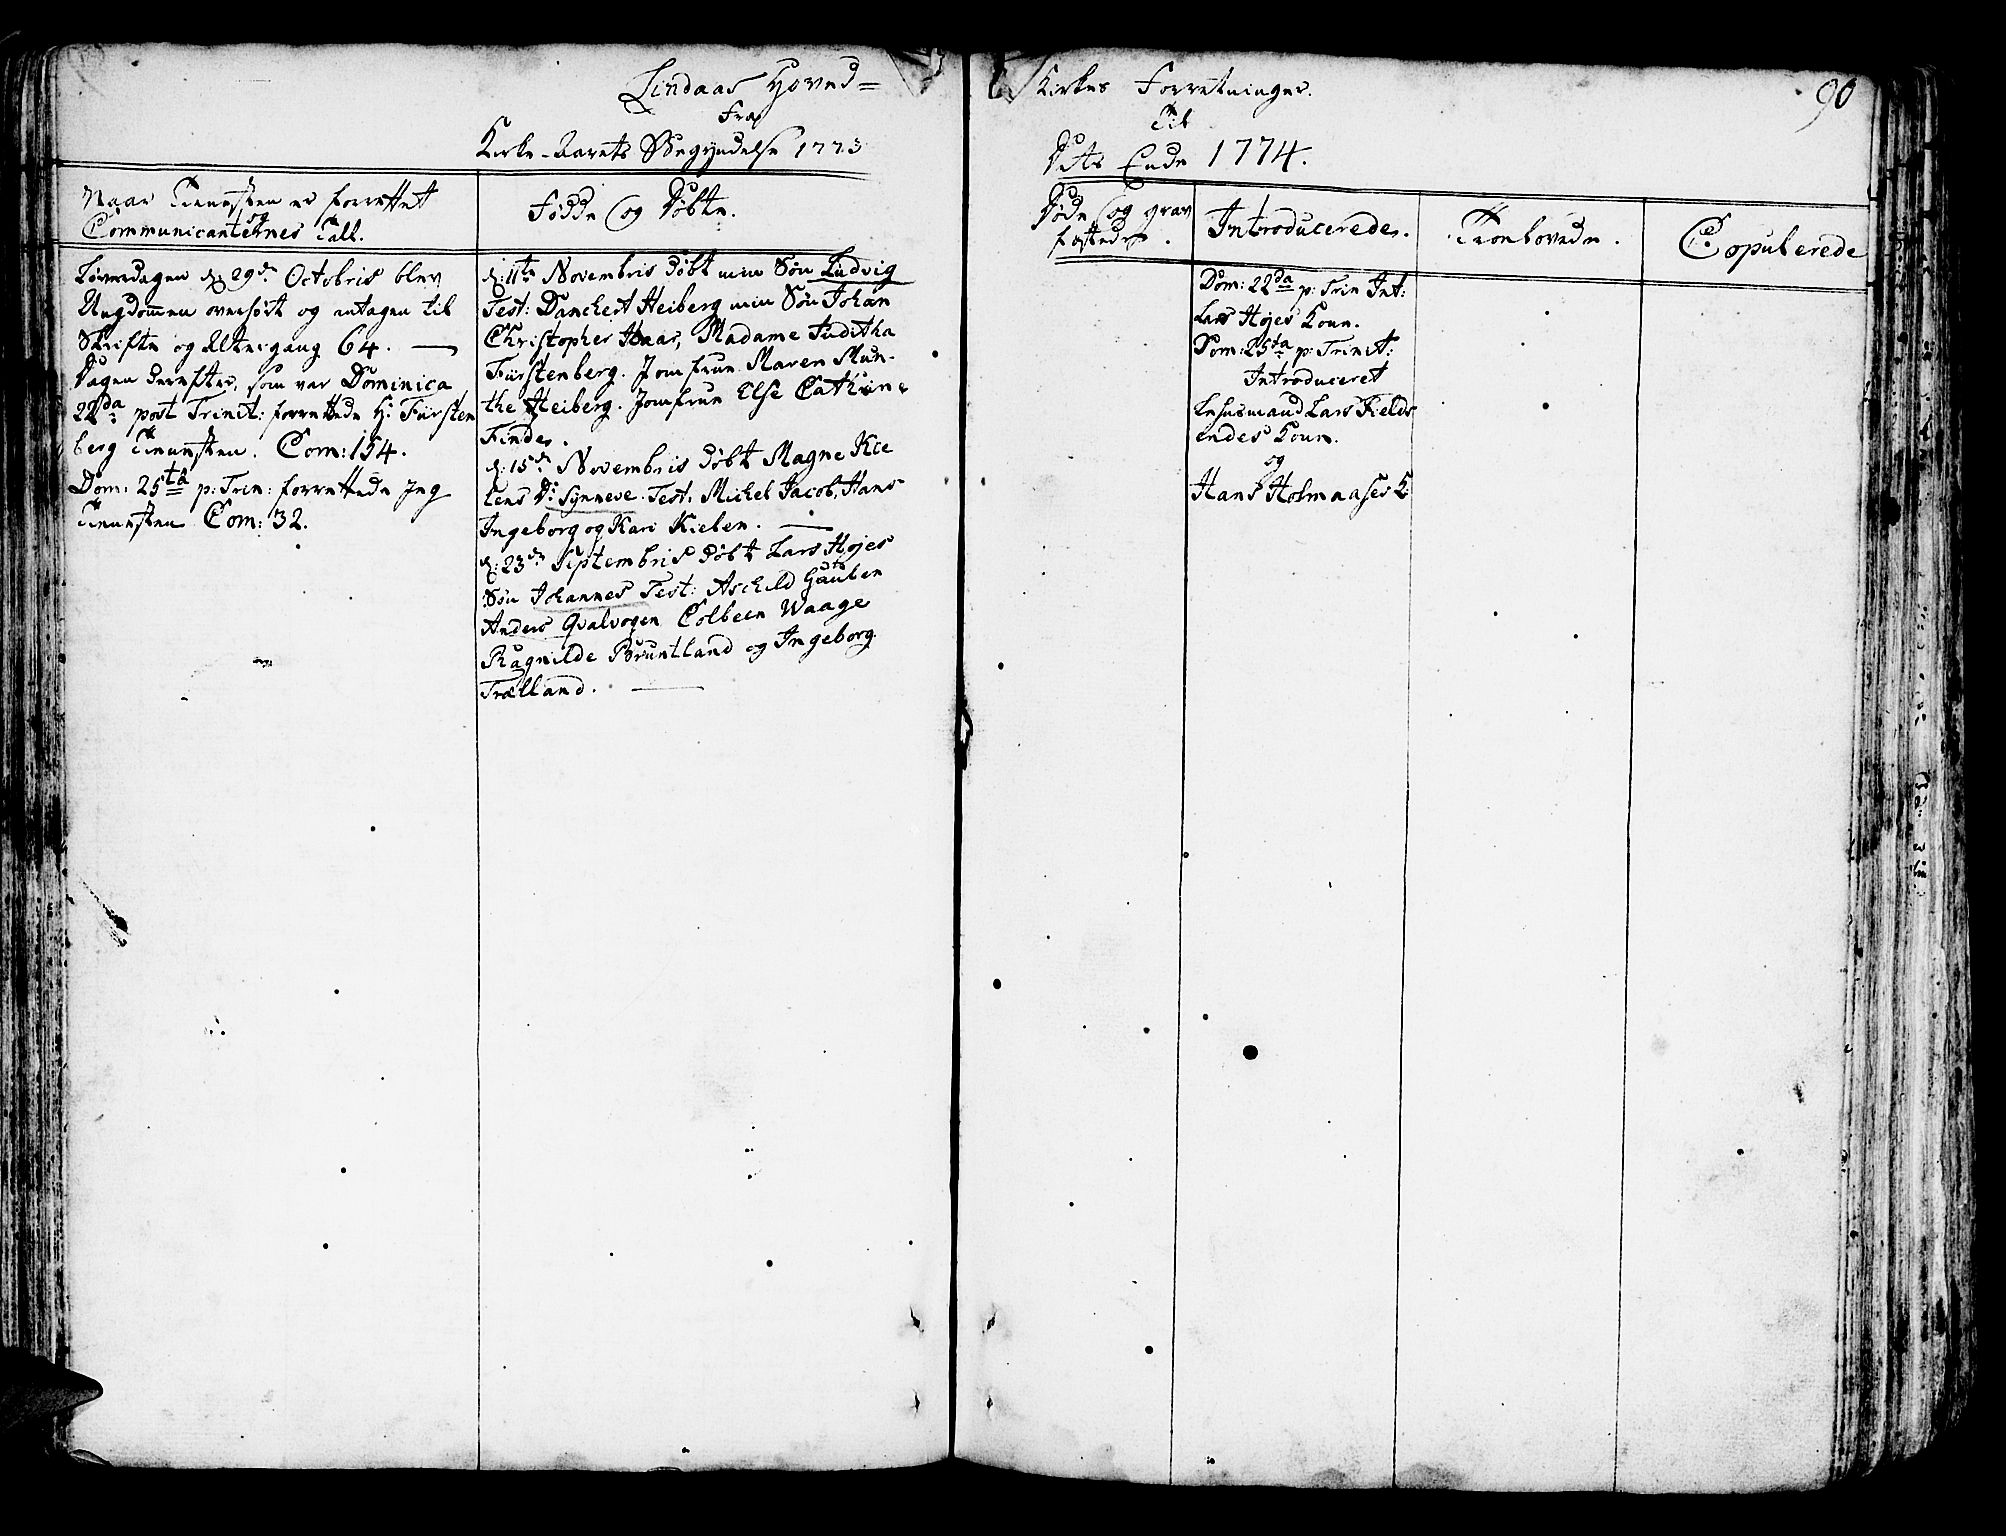 Lindaas Hoved=
Fra
Kirke-Aarets Begyndelse 1773
Naar Tienesten er forrettet
og
Communicanternes Tall.
Fødde og Døbte.
Løverdagen d: 29de Octobris blev
Ungdommen overhørt og antagen til
Skrifte og Altergang 64. —
Dagen derefter, som var Dominica
22da post Trinit: forrettede Hr Fürsten
berg Tienesten. Com: 154.
Dom: 25ta p: Trin: forrettede Jeg
Tienesten Com: 32.
d: 11te Novembris døbt min Søn Ludvig
Test: Danchert Heiberg min Søn Johan
Christopher Haar, Madame Juditha
Fürstenberg. Jomfrue Maren Mun-
the Heiberg. Jomfrue Else Cathrin-
Finde.
d: 15de Novembris døbt Magne Kie
lens D: Synneve. Test: Michel Jacob, Hans
Ingeborg og Kari Kielen. —
d: 23de Septembris døbt Lars Højes
Søn Johannes Test: Aschild
Anders Qvalvogen Colbeen Waage
Ragnilde Bruntland og Ingeborg
Trælland. —
Kirkes Forretninger.
90
Til
Dets Ende 1774.
Døde og grav
fæstede.
Introducerede.
Troelovede.
Copulerede
Dom: 22da p: Trin Int:
Lars Højes Kone.
Dom: 25ta p: Trinit:
Introduceret
Lehnsmand Lars Fields
endes Kone.
og
Hans Holmaases K: